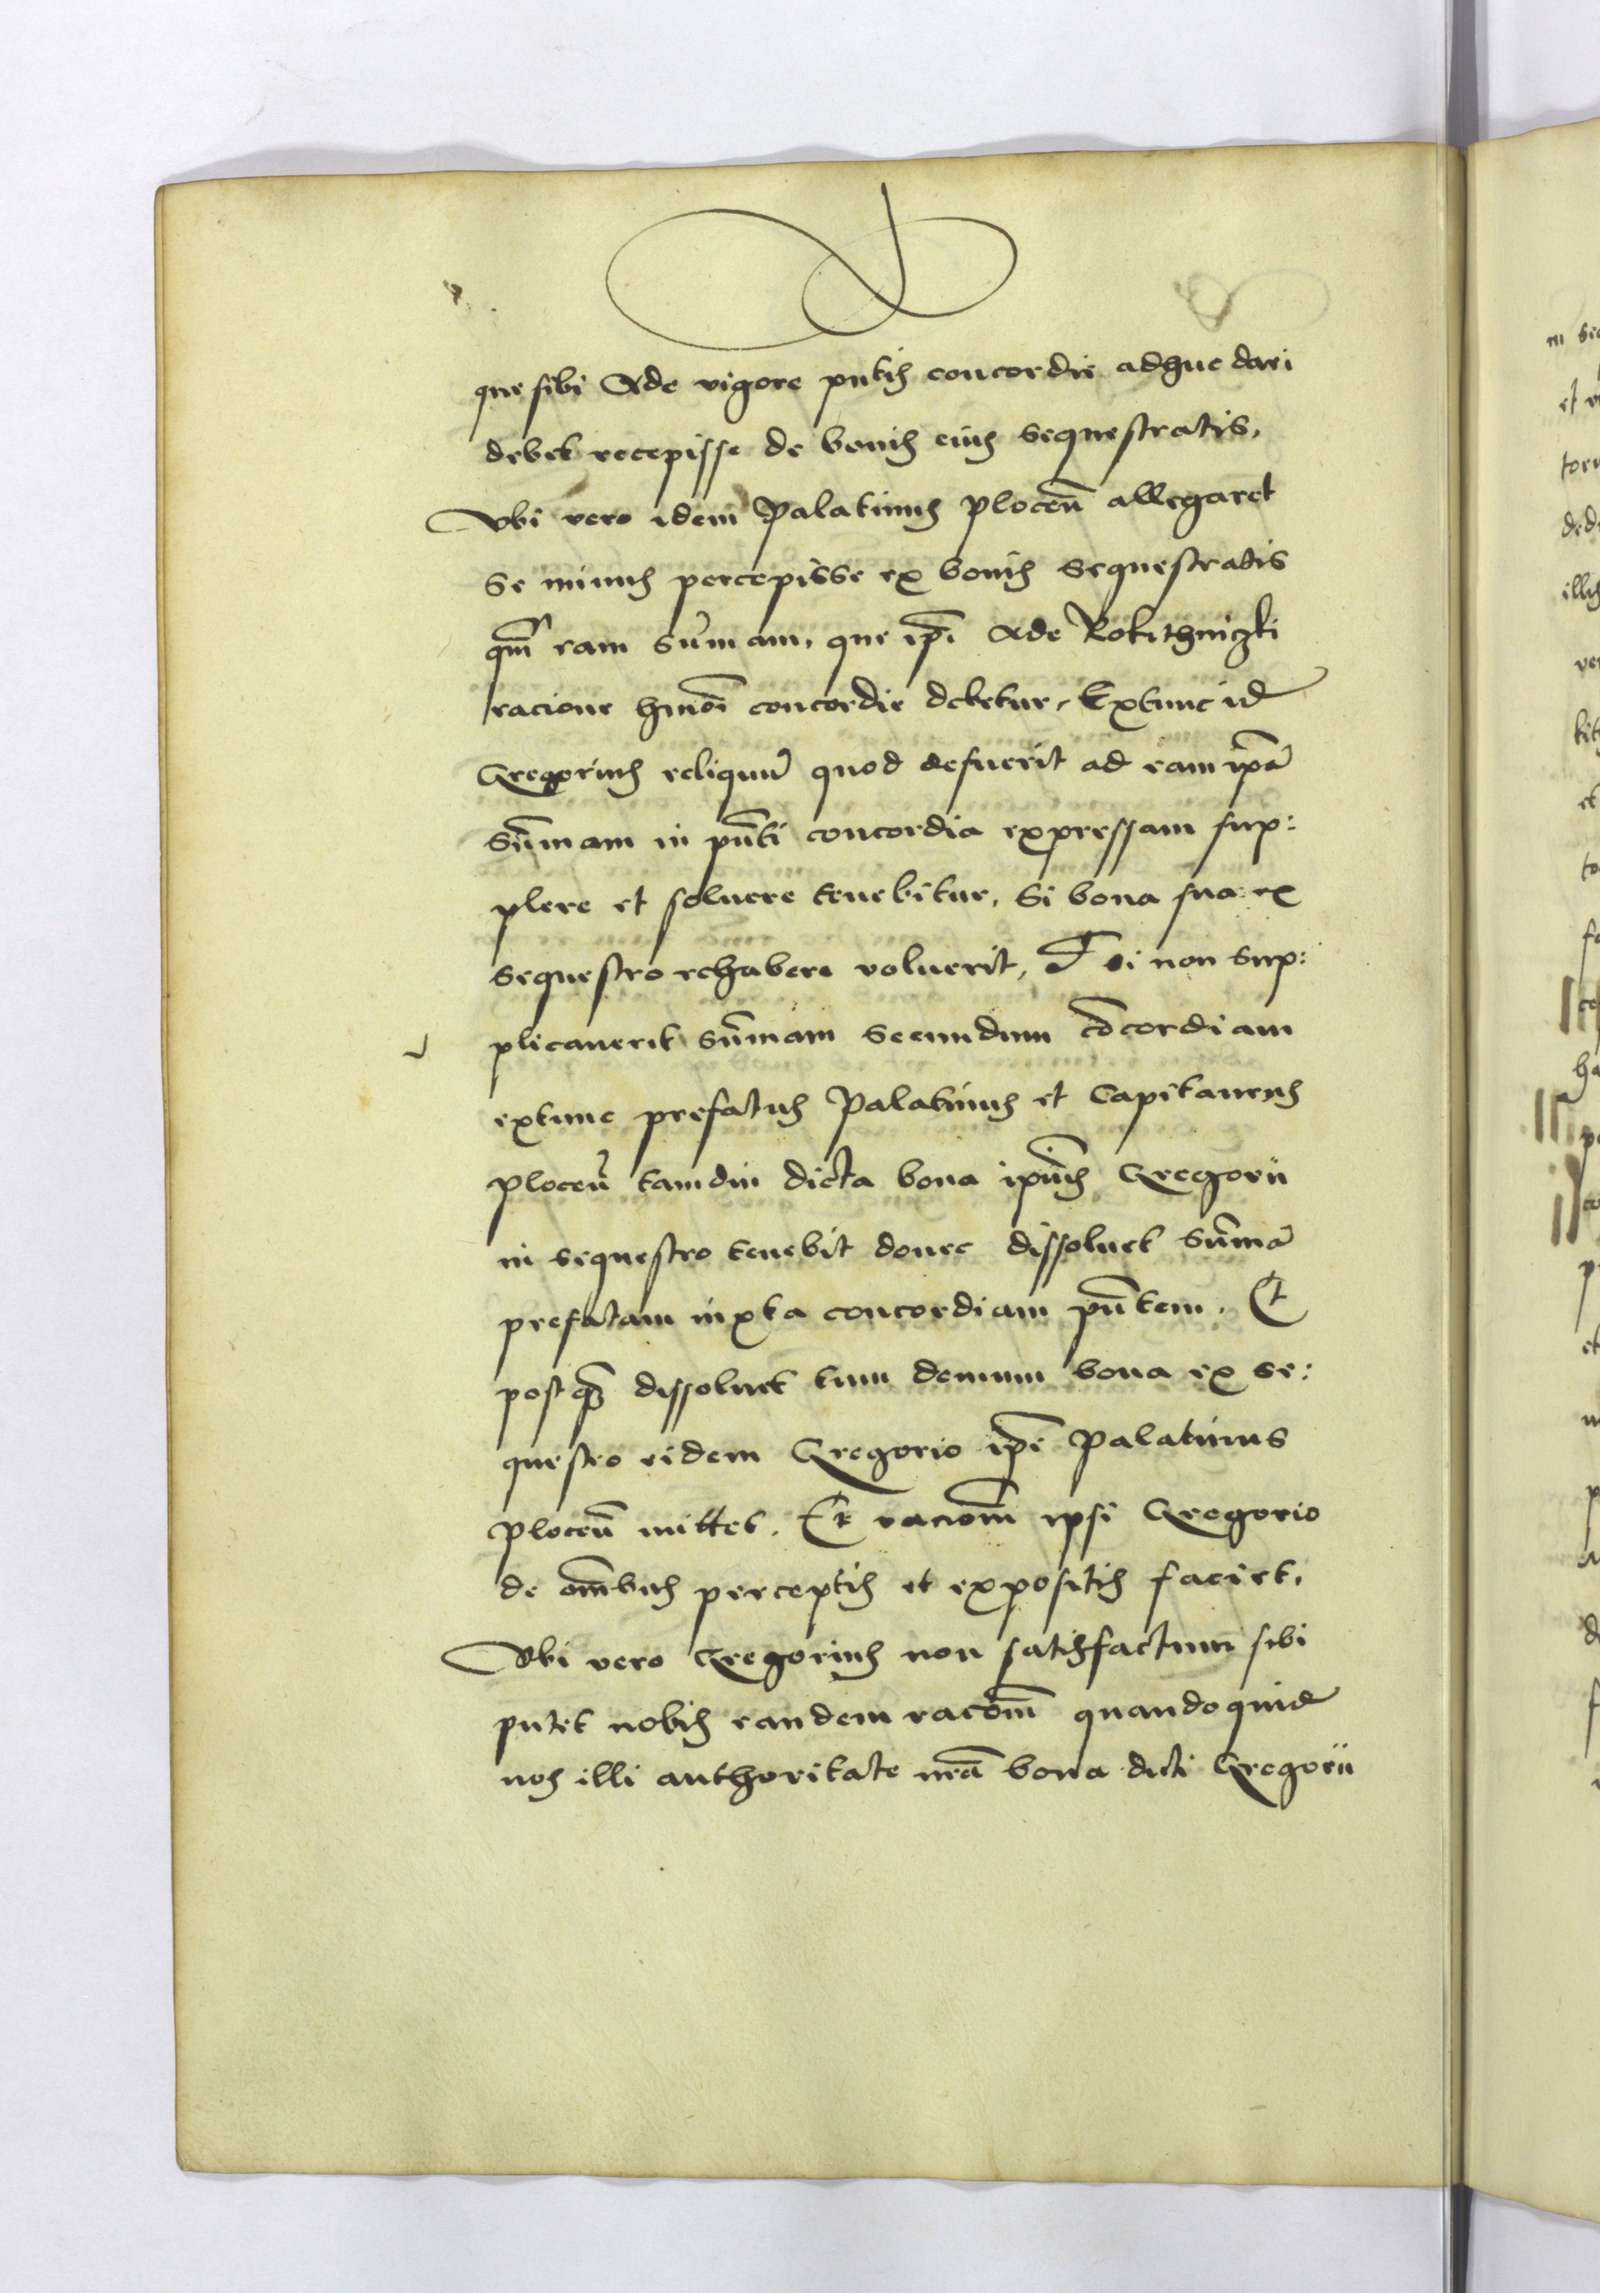 que sibi Ade vigore pn̄tis concordie adhuc dari
debet recepisse de bonis eius sequestratis.
Vbi vero idem Palatinus plocen̄ allegaret
se minus percepisse ex bonis sequestratis
qm̄ eam sum̄am, que ip̄i Ade Rokithniczki
racione hmōi concordie debetur, Extunc id
Gregorius reliquū quod defuerit ad eam ip̄ā
sum̄am in pn̄ti concordia expressam sup:
plere et soluere tenebitur, Si bona sua ex
sequestro rehabere voluerit, Et si non sup:
plicauerit sum̄am secundum cōcordiam
extunc prefatus Palatinus et Capitaneus
plocen̄ tamdiu dicta bona ipius Gregorii
in sequestro tenebit donec dissoluet sum̄ā
prefatam iuxta concordiam pn̄tem. Et
postq̄ dissoluet tum demum bona ex se:
questro eidem Gregorio ip̄e Palatinus
plocen̄ mittet. Et racionē ipsi Gregorio
de om̄bus perceptis et expositis faciet.
Vbi vero Gregorius non satisfactum sibi
putet nobis eandem racōm̄ quandoquid
nos illi authoritate nr̄a bona dicti Gregorii